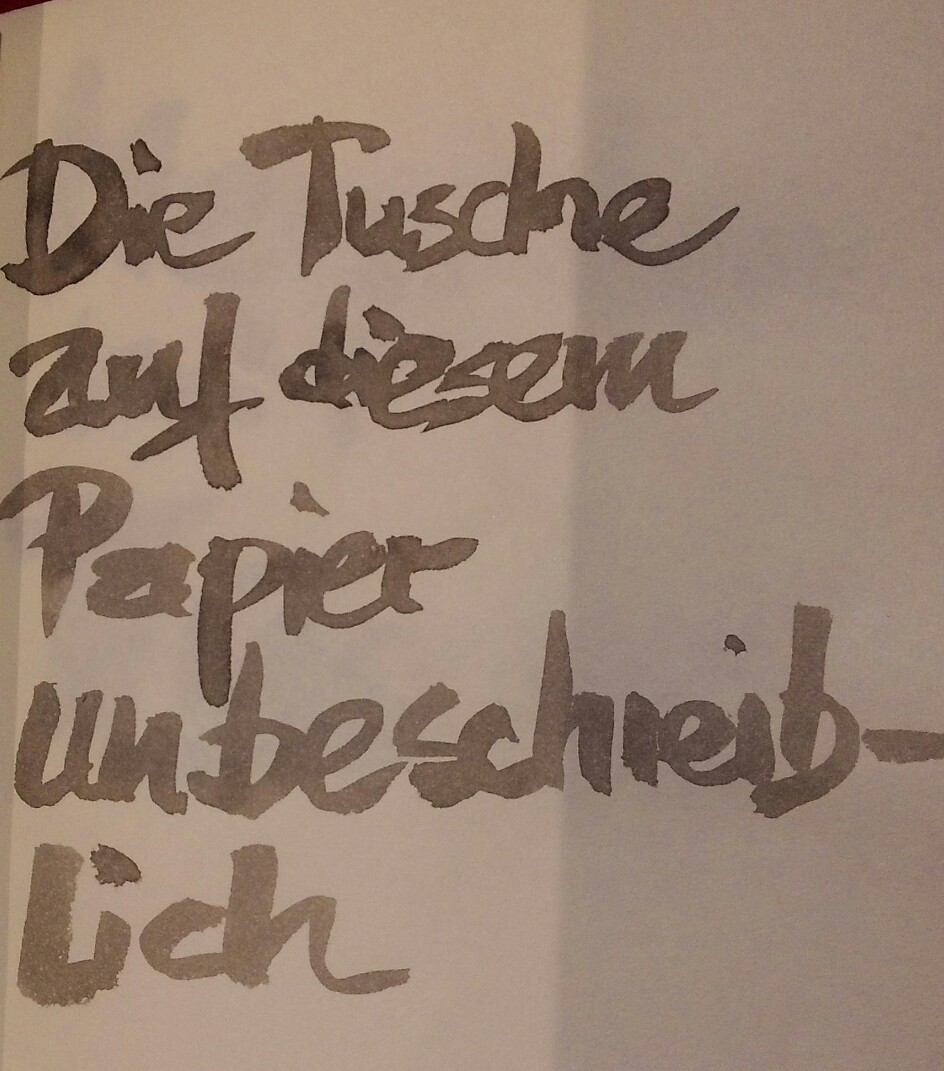 Die Tusche
auf diesem
Papier
unbeschreib-
lich